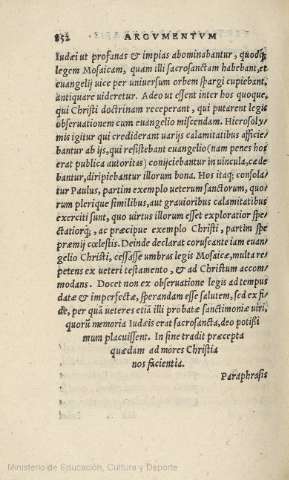 852 ARGVMENTVM
Iudæi ut profanas & impias abominabantur, quodq́;
legem Mosaicam, quam illi sacrosanctam habebant, et
euangelij uice per uniuersum orbem spargi cupiebant,
antiquare uideretur. Adeo ut essent inter hos quoque,
qui Christi doctrinam receperant, qui putarent legis
obseruationem cum euangelio miscendam. Hierosoly=
mis igitur qui crediderant uarijs calamitatibus afficie=
bantur ab ijs, qui resistebant euangelio (nam penes hos
erat publica autoritas) conijciebantur in uincula, cæde
bantur, diripiebantur illorum bona. Hos itaq; consola=
tur Paulus, partim exemplo ueterum sanctorum, quo=
rum plerique similibus, aut grauioribus calamitatibus
exerciti sunt, quo uirtus illorum esset exploratior spe=
ctatiorq́;, ac præcipue exemplo Christi, partim spe
præmij cœlestis. Deinde declarat coruscante iam euan=
gelio Christi, cessasse umbras legis Mosaicæ, multa re=
petens ex ueteri testamento, & ad Christum accom=
modans. Docet non ex obseruatione legis ad tempus
datæ & imperfectæ, sperandam esse salutem, sed ex fi=
de, per quã ueteres etiã illi probatæ sanctimoniæ uiri,
quorũ memoria Iudæis erat sacrosancta, deo potißi
mum placuissent. In fine tradit præcepta
quædam ad mores Christia
nos facientia.
Paraphrasis
Ministerio de Educación, Cultura y Deporte